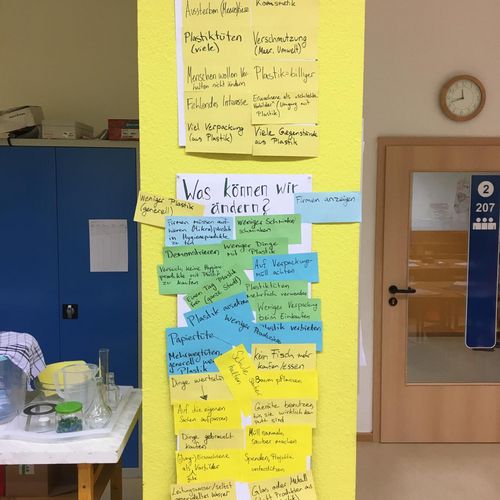 Aussterben (Meerestiere)
Kosmetik
Plastiktüten
(viele)
Verschmutzung
(Meer, Umwelt)
Menschen wollen Ver-
halten nicht ändern
Plastik = billiger
Fehlendes Interesse
Erwachsene als schlechte
Vorbilder (Umgang mit
Plastik)
Viel Verpackung
(aus Plastik)
Viele Gegenstände
aus Plastik
Was können wir
ändern?
Weniger Plastik
(generell)
Firmen anzeigen
Firmen müssen auf-
hören (Mikro)plastik
in Hygieneprodukte
zu tun
Weniger Schminke
Demonstrieren
Weniger Dinge
mit Plastik
Versuch, keine
produkte mit Plastik
zu kaufen
Auf Verpackung
achten
Einen Tag Plastik
frei (ganze Stadt)
Plastiktüten
Mehrfach verwenden
Plastik ersetzen
Weniger Verpackung
beim Einkaufen
weniger
Plastik verbieten
Papiertüte
Mehrwegtüten,
generell
Plastik
Kein Fisch mehr
kaufen/essen
Dinge
Bäume pflanzen
Auf die eigenen
Sachen aufpassen
Geräte benutzen,
bis sie wirklich
kaputt sind
Dinge gebraucht
kaufen
Müll sammeln,
sauber machen
Erwachsene
als Vorbilder
Spenden, Projekte
unterstützen
Leitungswasser/selbst
Wasser
Glas oder Metall
Produkte aus
2
207